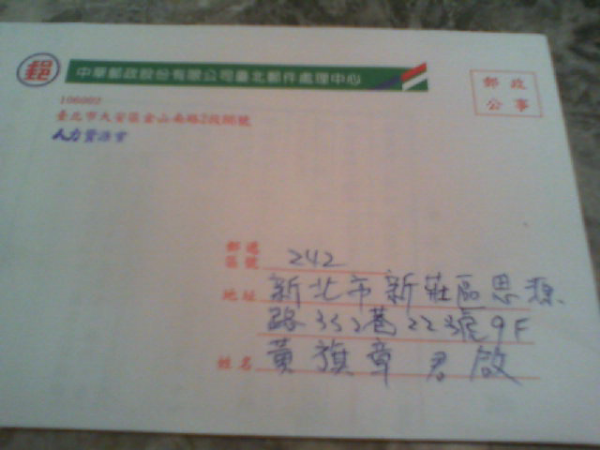 郵 中華郵政股份有限公司臺北郵件處理中心
郵政
公事
106002
臺北市大安區金山南路2段55號
人力資源室
郵遞
區號 242
地址 新北市新莊區思源
路352巷22號9F
姓名 黃旗章 君啟